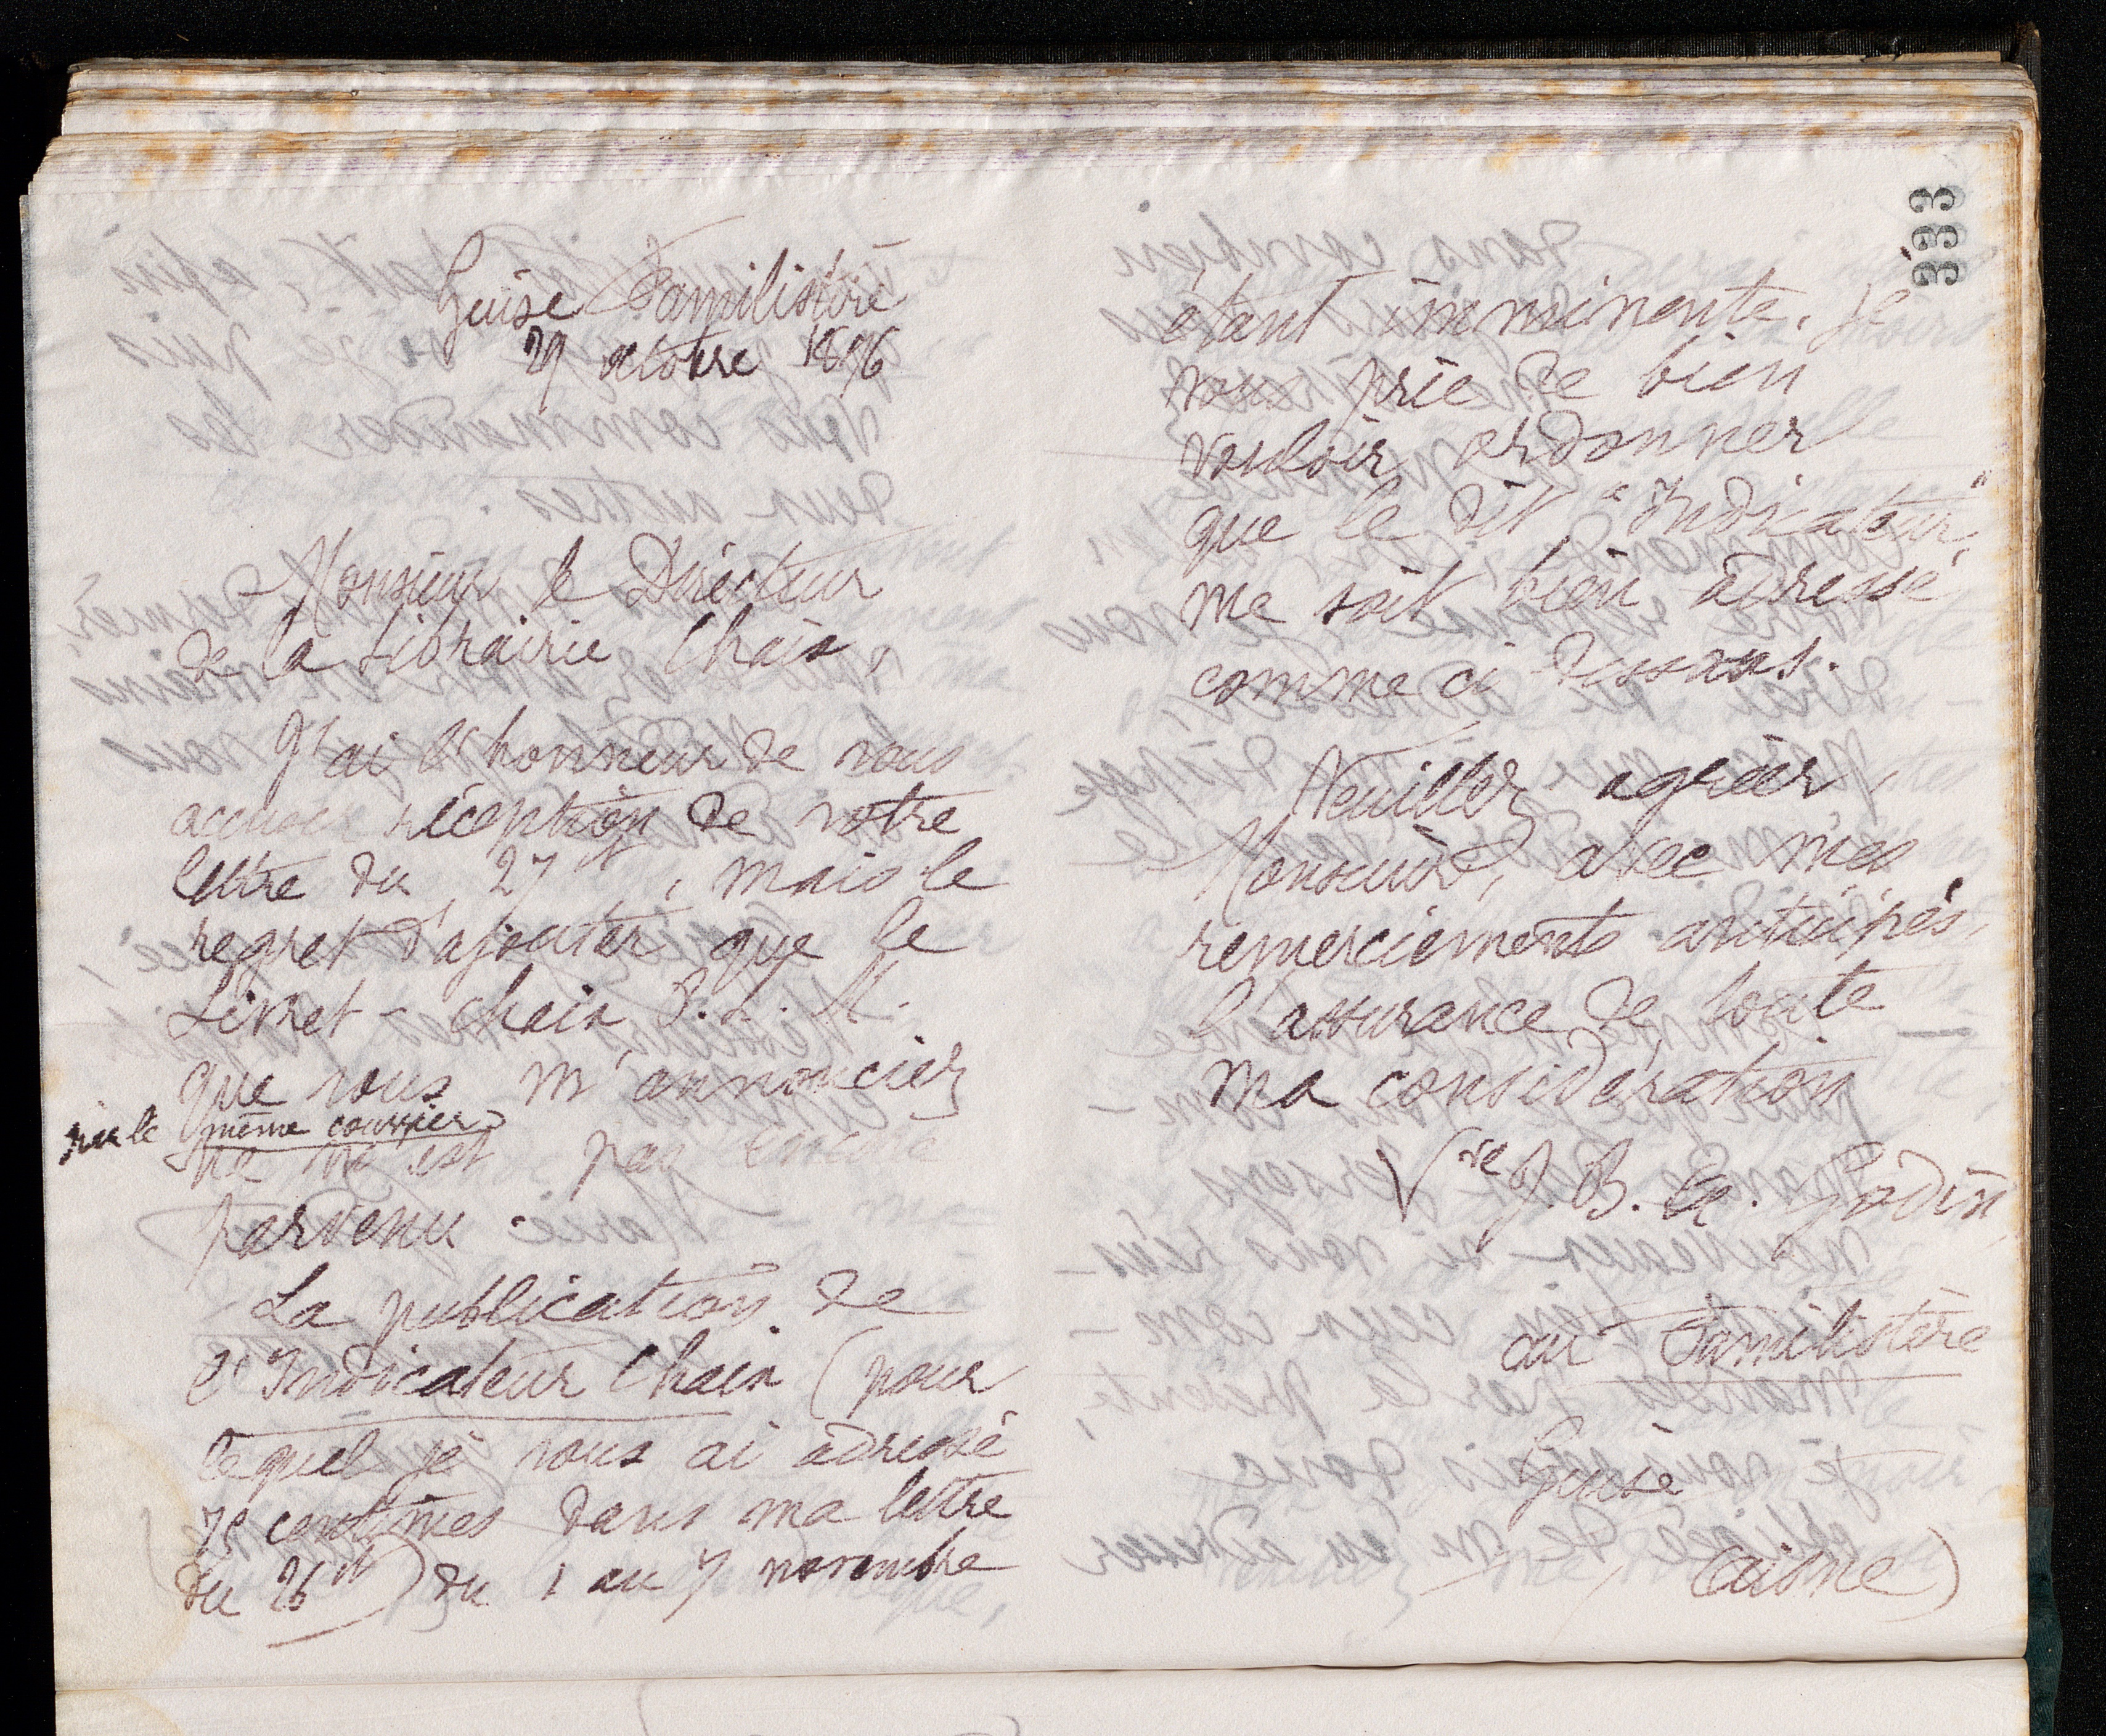 Guise Familistère
29 octobre 1896
Monsieur le Directeur
de la Librairie Chaix,
J'ai l'honneur de vous
accuser réception de votre
lettre du 27 ct, mais le
regret d'ajouter que le
Livret-Chaix P.L.M.
que vous m'annonciez
par le même courrier
ne m'est pas encore
parvenu.
La publication de
l'Indicateur Chaix (pour
lequel je vous ai adressé
75 centimes dans ma lettre
du 26 ct) du 1 au 7 novembre
333
étant imminente, je
vous prie de bien
vouloir ordonner
que le dit "Indicateur"
me soit bien adressé
comme ci dessous.
Veuillez agréer,
Monsieur, avec mes
remerciements anticipés,
l'assurance de toute
ma considération
Vve J. B. A. Godin
au Familistère
Guise
(aisne)